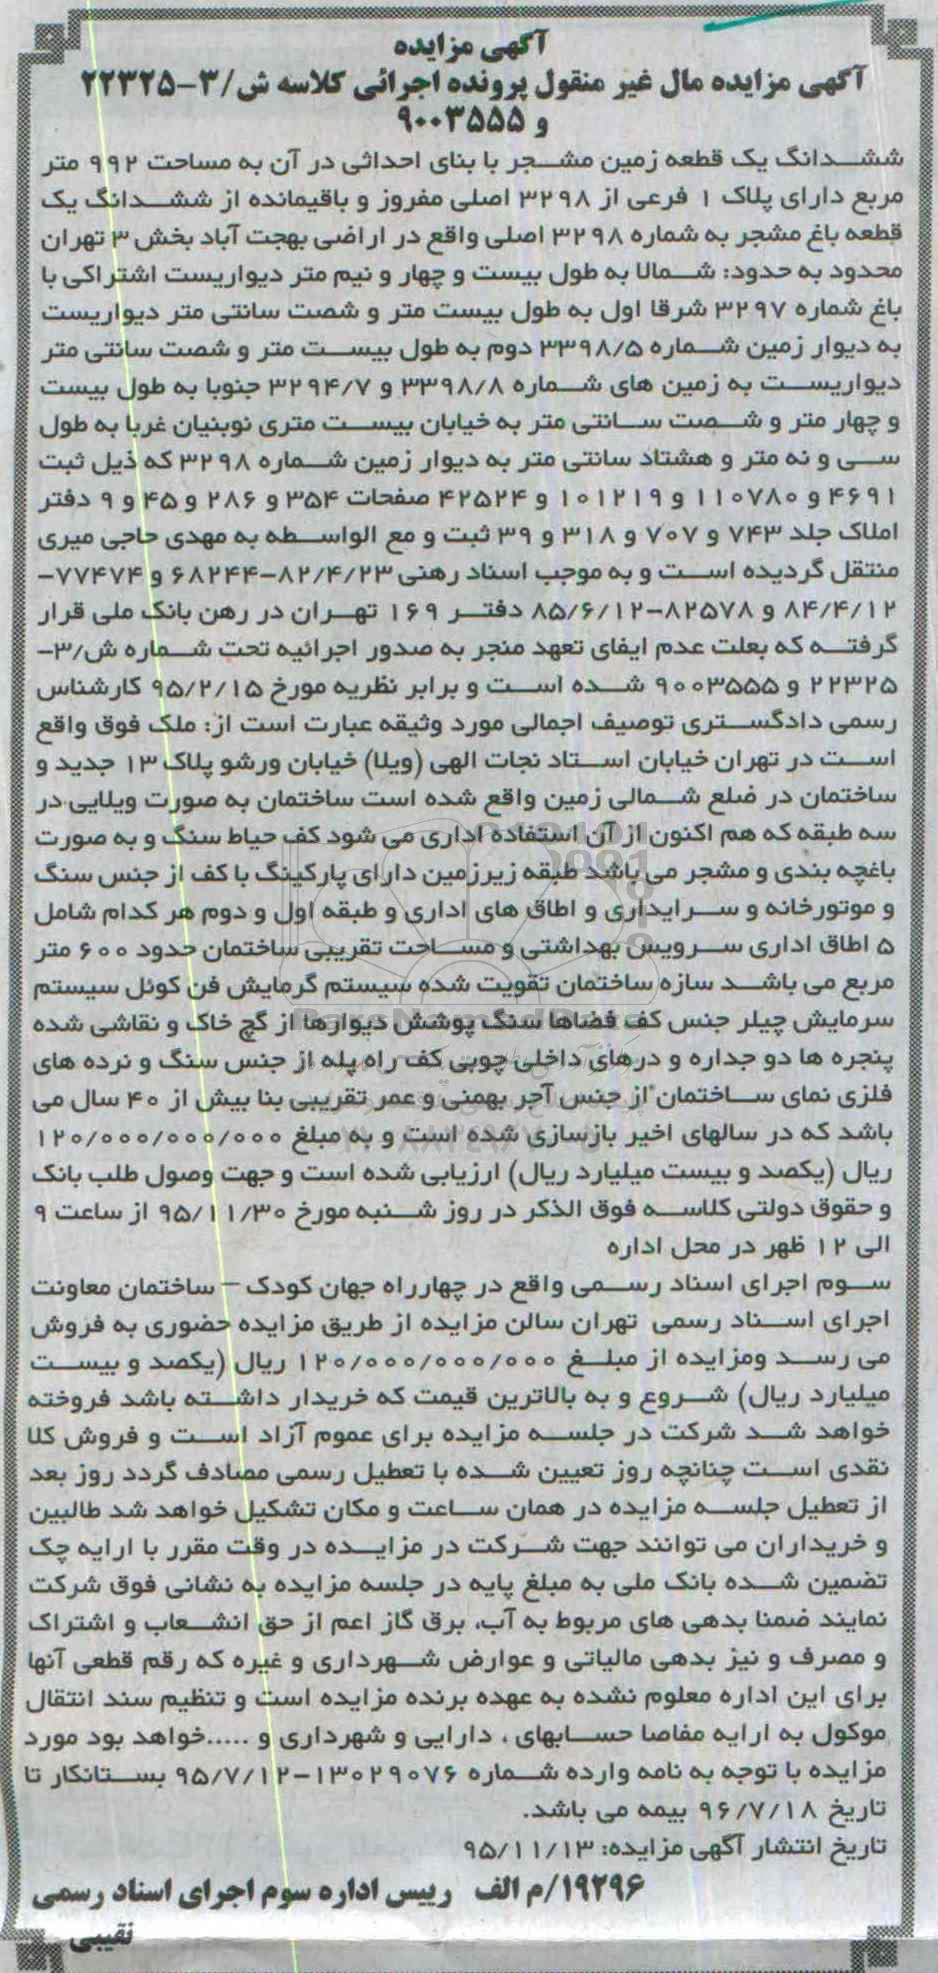 آگهی مزایده
آگهی مزایده مال غیر منقول پرونده اجرائی کلاسه ش/۳-۲۲۳۲۵
و ۹۰۰۳۵۵۵
ششدانگ یک قطعه زمین مشجر با بنای احداثی در آن به مساحت ۹۹۲ متر
مربع دارای پلاک ۱ فرعی از ۳۲۹۸ اصلی مفروز و باقیمانده از ششدانگ یک
قطعه باغ مشجر به شماره ۳۲۹۸ اصلی واقع در اراضی بهجت آباد بخش ۳ تهران
محدود به حدود: شمالا به طول بیست و چهار و نیم متر دیواریست اشتراکی با
باغ شماره ۳۲۹۷ شرقا اول به طول بیست متر و شصت سانتی متر دیواریست
به دیوار زمین شماره ۳۳۹۸/۵ دوم به طول بیست متر و شصت سانتی متر
دیواریست به زمین های شماره ۳۳۹۸/۸ و ۳۲۹۴/۷ جنوبا به طول بیست
و چهار متر و شصت سانتی متر به خیابان بیست متری نوبنیان غربا به طول
سی و نه متر و هشتاد سانتی متر به دیوار زمین شماره ۳۲۹۸ که ذیل ثبت
۴۶۹۱ و ۱۱۰۷۸۰ و ۱۰۱۲۱۹ و ۴۲۵۲۴ صفحات ۳۵۴ و ۲۸۶ و ۴۵ و ۹ دفتر
املاک جلد ۷۴۳ و ۷۰۷ و ۳۱۸ و ۳۹ ثبت و مع الواسطه به مهدی حاجی میری
منتقل گردیده است و به موجب اسناد رهنی ۸۲/۴/۲۳-۶۸۲۴۴ و ۷۷۴۷۴-
۸۴/۴/۱۲ و ۸۲۵۷۸-۸۵/۶/۱۲ دفتر ۱۶۹ تهران در رهن بانک ملی قرار
گرفته که بعلت عدم ایفای تعهد منجر به صدور اجرائیه تحت شماره ش/۳-
۲۲۳۲۵ و ۹۰۰۳۵۵۵ شده است و برابر نظریه مورخ ۹۵/۲/۱۵ کارشناس
رسمی دادگستری توصیف اجمالی مورد وثیقه عبارت است از: ملک فوق واقع
است در تهران خیابان استاد نجات الهی (ویلا) خیابان ورشو پلاک ۱۳ جدید و
ساختمان در ضلع شمالی زمین واقع شده است ساختمان به صورت ویلایی در
سه طبقه که هم اکنون از آن استفاده اداری می شود کف حیاط سنگ و به صورت
باغچه بندی و مشجر می باشد طبقه زیرزمین دارای پارکینگ با کف از جنس سنگ
و موتورخانه و سرایداری و اطاق های اداری و طبقه اول و دوم هر کدام شامل
۵ اطاق اداری سرویس بهداشتی و مساحت تقریبی ساختمان حدود ۶۰۰ متر
مربع می باشد سازه ساختمان تقویت شده سیستم گرمایش فن کوئل سیستم
سرمایش چیلر جنس کف فضاها سنگ پوشش دیوارها از گچ خاک و نقاشی شده
پنجره ها دو جداره و درهای داخلی چوبی کف راه پله از جنس سنگ و نرده های
فلزی نمای ساختمان از جنس آجر بهمنی و عمر تقریبی بنا بیش از ۴۰ سال می
باشد که در سالهای اخیر بازسازی شده است و به مبلغ ۱۲۰/۰۰۰/۰۰۰/۰۰۰
ریال (یکصد و بیست میلیارد ریال) ارزیابی شده است و جهت وصول طلب بانک
و حقوق دولتی کلاسه فوق الذکر در روز شنبه مورخ ۹۵/۱۱/۳۰ از ساعت ۹
الی ۱۲ ظهر در محل اداره
سوم اجرای اسناد رسمی واقع در چهارراه جهان کودک – ساختمان معاونت
اجرای اسناد رسمی تهران سالن مزایده از طریق مزایده حضوری به فروش
می رسد ومزایده از مبلغ ۱۲۰/۰۰۰/۰۰۰/۰۰۰ ریال (یکصد و بیست
میلیارد ریال) شروع و به بالاترین قیمت که خریدار داشته باشد فروخته
خواهد شد شرکت در جلسه مزایده برای عموم آزاد است و فروش کلا
نقدی است چنانچه روز تعیین شده با تعطیل رسمی مصادف گردد روز بعد
از تعطیل جلسه مزایده در همان ساعت و مکان تشکیل خواهد شد طالبین
و خریداران می توانند جهت شرکت در مزایده در وقت مقرر با ارایه چک
تضمین شده بانک ملی به مبلغ پایه در جلسه مزایده به نشانی فوق شرکت
نمایند ضمنا بدهی های مربوط به آب، برق گاز اعم از حق انشعاب و اشتراک
و مصرف و نیز بدهی مالیاتی و عوارض شهرداری و غیره که رقم قطعی آنها
برای این اداره معلوم نشده به عهده برنده مزایده است و تنظیم سند انتقال
موکول به ارایه مفاصا حسابهای ، دارایی و شهرداری و .....خواهد بود مورد
مزایده با توجه به نامه وارده شماره ۱۳۰۲۹۰۷۶-۹۵/۷/۱۲ بستانکار تا
تاریخ ۹۶/۷/۱۸ بیمه می باشد.
تاریخ انتشار آگهی مزایده: ۹۵/۱۱/۱۳
۱۹۲۹۶/م الف رییس اداره سوم اجرای اسناد رسمی
نقیبی